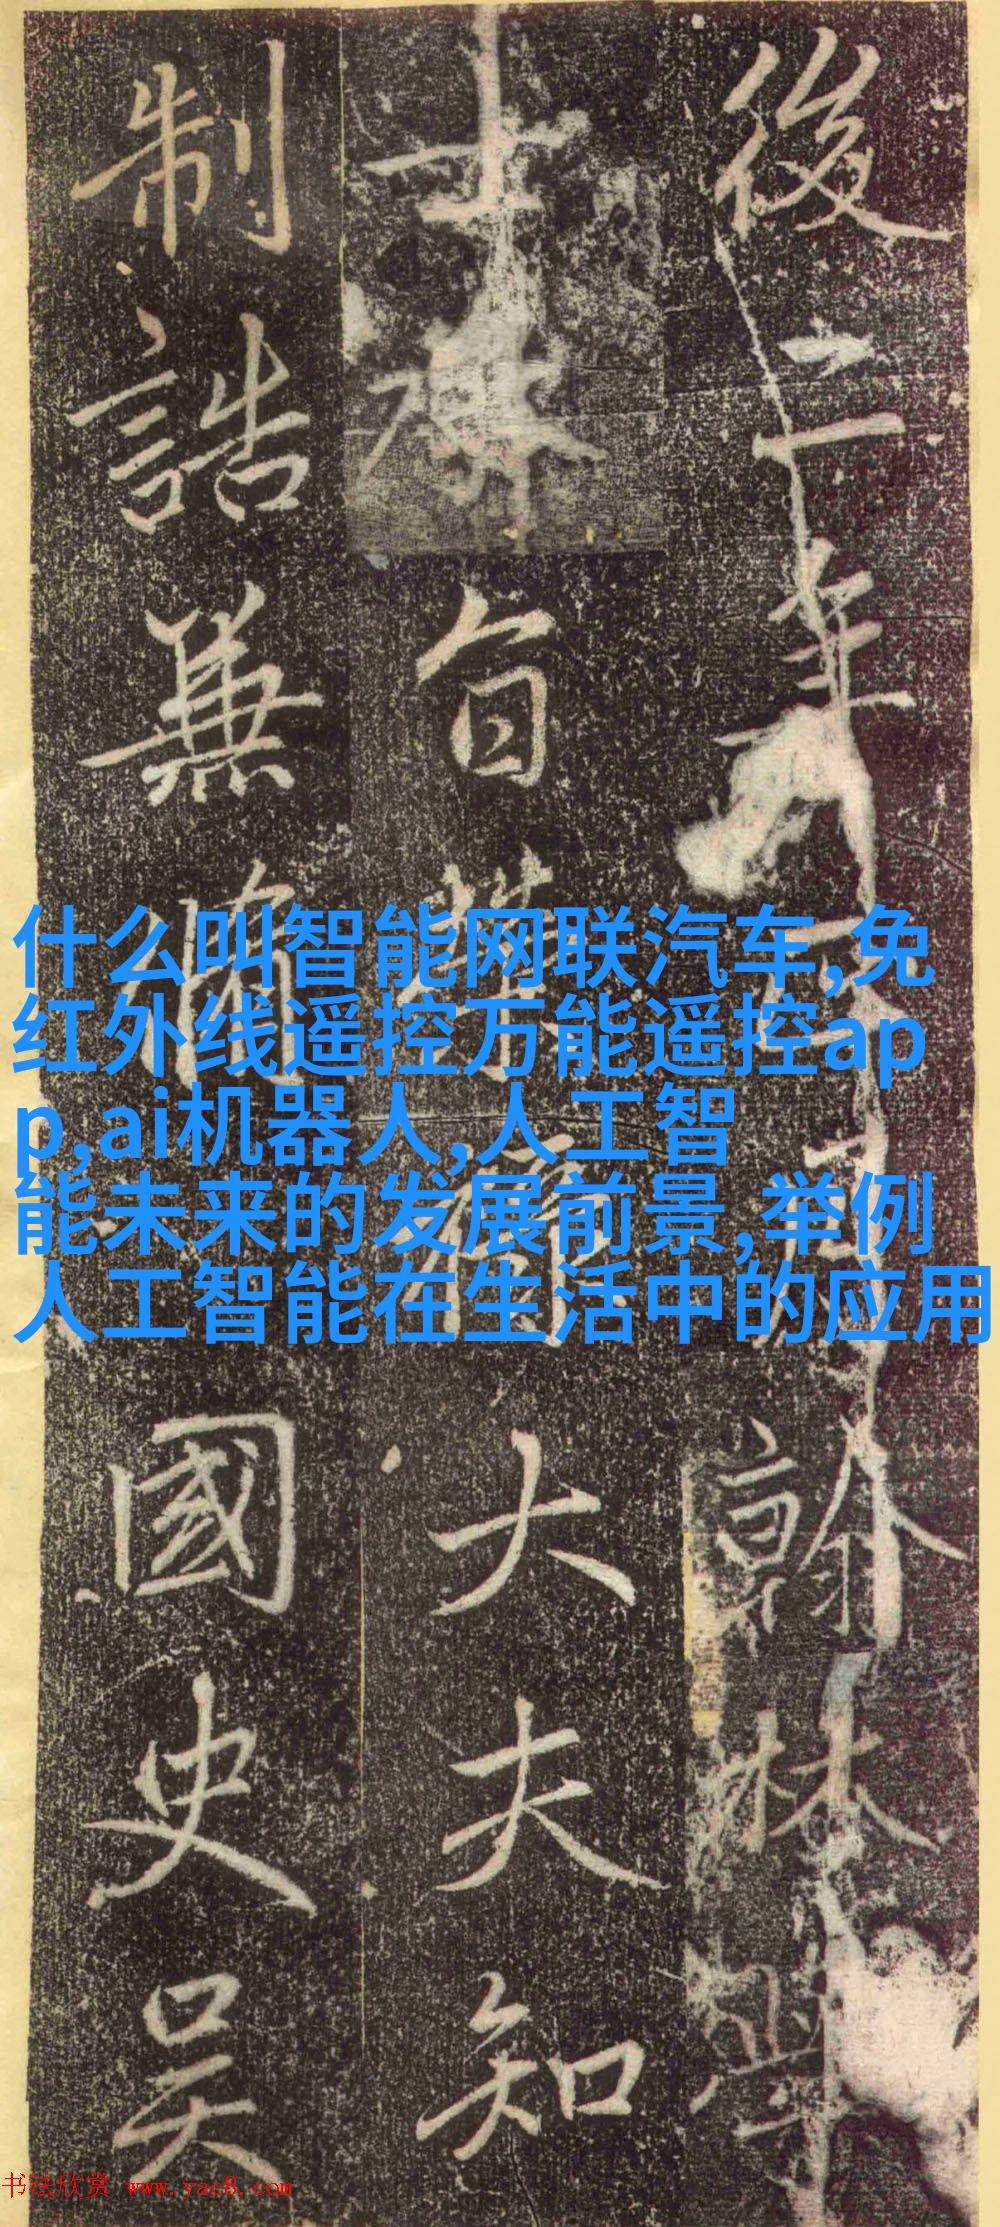 後二年翰林學
士旨大夫知
制誥兼國史吳
什么叫智能网联汽车,免
红外线遥控万能遥控ap
p,ai机器人,人工智
能未来的发展前景,举例
人工智能在生活中的应用
书法欣赏 www.yac8.com